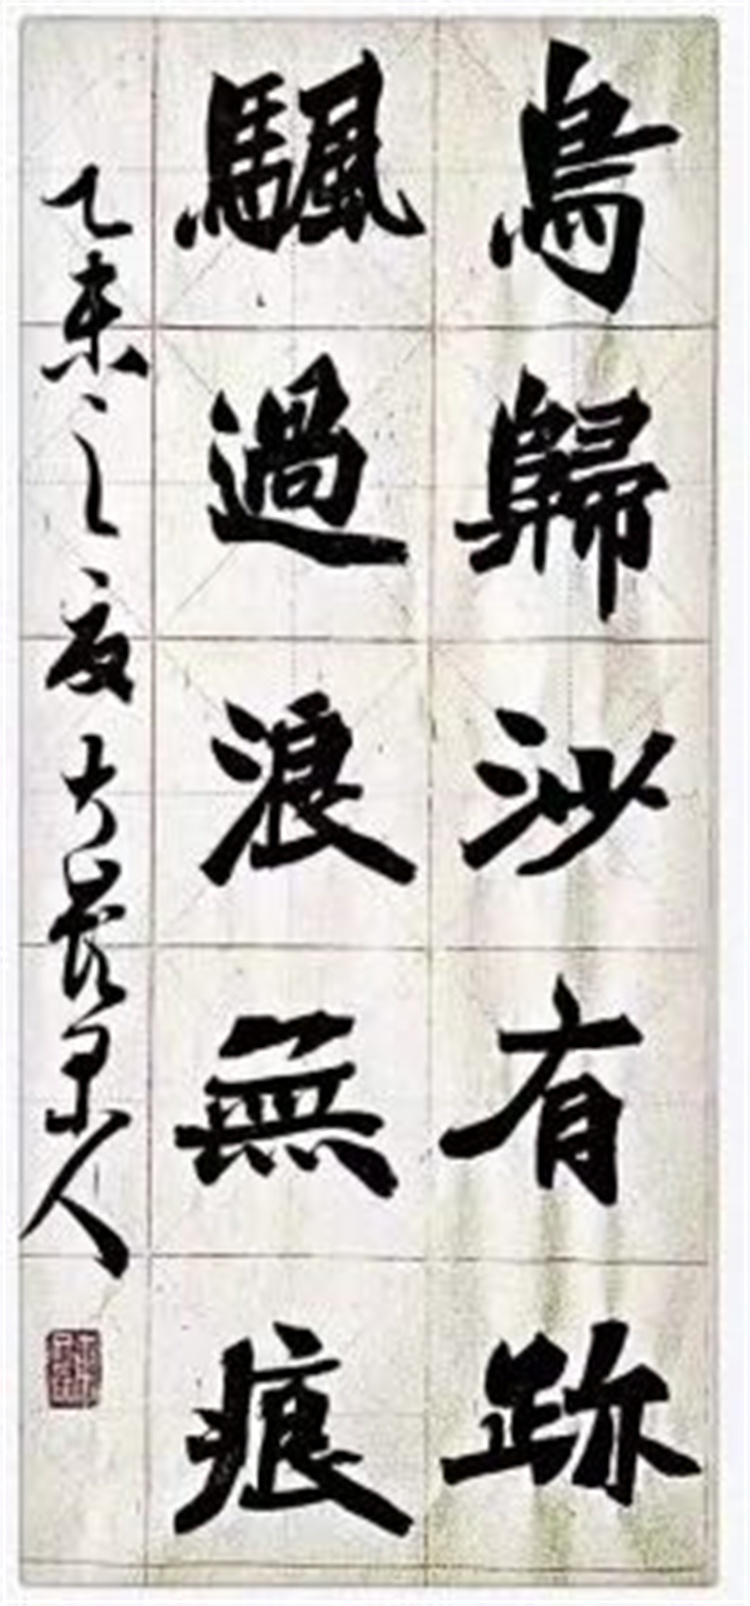 鳥歸沙有跡
颿過浪無痕
乙未之夏大人